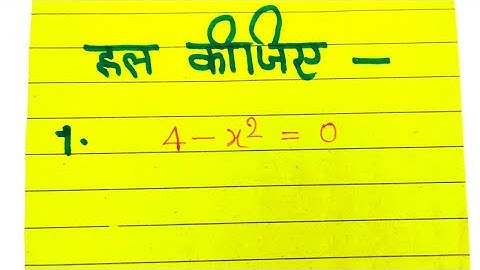 हल कीजिए –
1. 4 - x² = 0